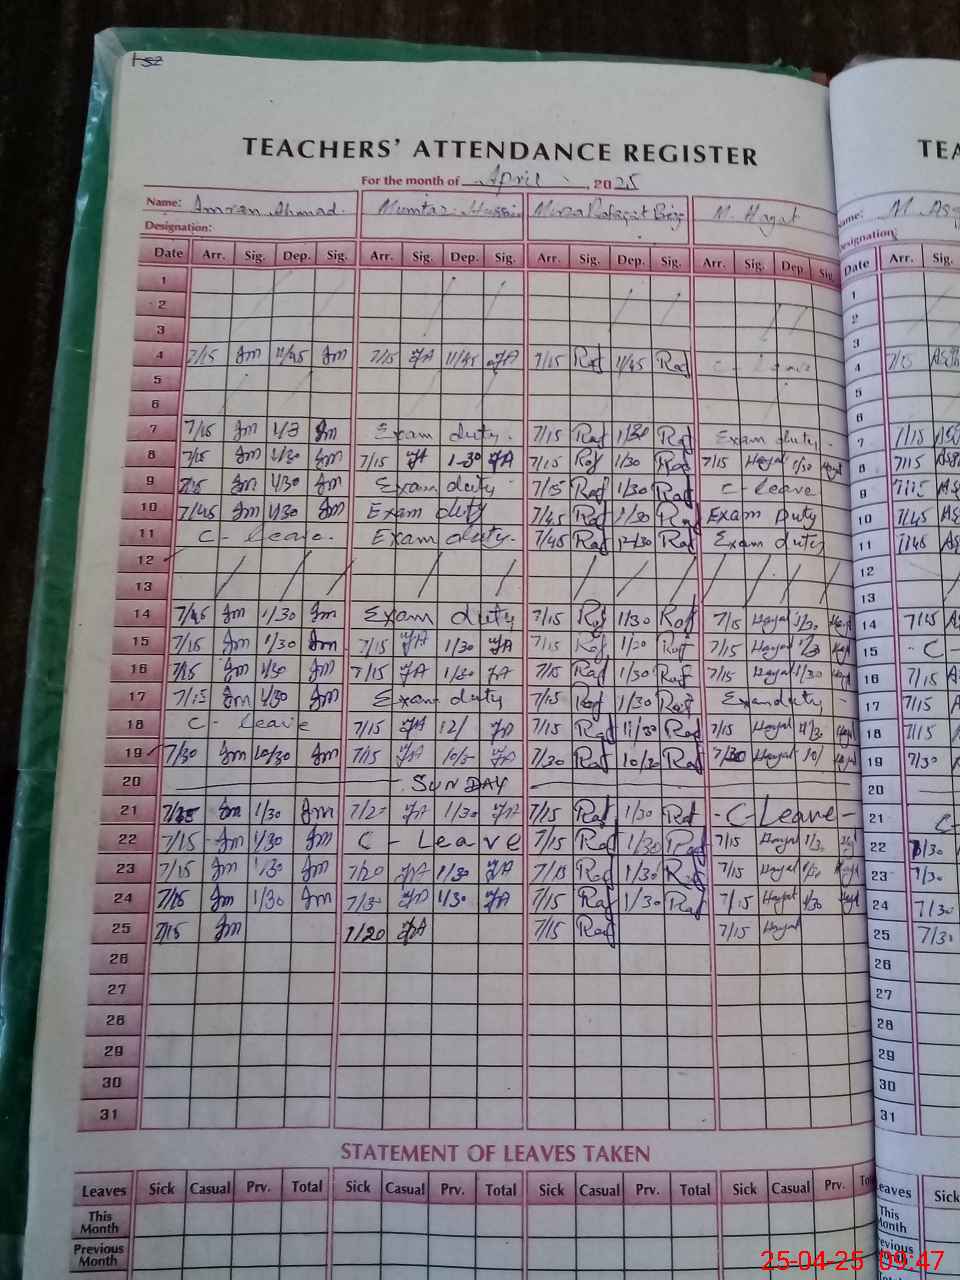 TEACHERS' ATTENDANCE REGISTER
For the month of April, 2025
Name: Imran Ahmad. Mumtaz Hussain M. Hayat
Designation:
Date Arr. Sig. Dep. Sig. Arr. Sig. Dep. Sig. Arr. Sig. Dep. Sig. Arr. Sig. Dep. Sig.
1
2
3
4 7/15 Jm 11/45 Jm 7/15 JA 11/45 JA 7/15 Raf 11/45 Raf C-Leave
5
6
7 7/15 Jm 1/3 Jm Exam duty. 7/15 Raf 1/30 Raf Exam duty-
8 7/15 Jm 1/30 Jm 7/15 JA 1-30 JA 7/15 Raf 1/30 Raf 7/15 Hayat 1/30 Hayat
9 7/15 Jm 1/30 Jm Exam duty 7/15 Raf 1/30 Raf C-leave
10 7/45 Jm 1/30 Jm Exam duty 7/45 Raf 1/30 Raf Exam Duty
11 C-leave. Exam duty. 7/45 Raf 12/30 Raf Exam duty
12
13
14 7/45 Jm 1/30 Jm Exam duty 7/15 Raf 1/30 Raf 7/15 Hayat 1/30 Hayat
15 7/15 Jm 1/30 Jm 7/15 JA 1/30 JA 7/15 Raf Raf 7/15 Hayat 1/3 Hayat
16 7/15 Jm 1/30 Jm 7/15 JA 1/30 JA 7/15 Raf 1/30 Raf 7/15 Hayat 1/30 Hayat
17 7/15 Jm 1/30 Jm Exam duty 7/15 Raf 1/30 Raf Exam duty
18 C-Leave 7/15 JA 12/ JA 7/15 Raf 11/30 Raf 7/15 Hayat Hayat
19 7/30 Jm 10/30 Jm 7/15 JA JA 7/30 Raf 10/30 Raf 7/30 Hayat 10/ Hayat
20 SUNDAY
21 Jm 1/30 Jm JA 1/30 JA 7/15 Raf 1/30 Raf -C-Leave-
22 7/15 Jm 1/30 Jm C-Leave 7/15 Raf 1/30 Raf 7/15 Hayat 1/30
23 7/15 Jm 1/30 Jm 7/20 JA 1/30 JA 7/15 Raf 1/30 Raf 7/15 Hayat Hayat
24 7/15 Jm 1/30 Jm 7/30 JA 1/30 JA 7/15 Raf 1/30 Raf 7/15 Hayat 1/30
25 7/15 Jm 7/20 JA 7/15 Raf 7/15 Hayat
26
27
28
29
30
31
STATEMENT OF LEAVES TAKEN
Leaves Sick Casual Prv. Total Sick Casual Prv. Total Sick Casual Prv. Total Sick Casual Prv.
This Month
Previous Month
Date Arr. Sig.
1
2
3
4 7/15
5
6
7 7/15
8 7/15
9 7/15
10 7/45
11
12
13
14
15 C-
16 7/15
17 7/15
18 7/15
19 7/30
20
21 C-
22
23 7/30
24 7/30
25 7/30
26
27
28
29
30
31
Sick
25-04-25 09:47